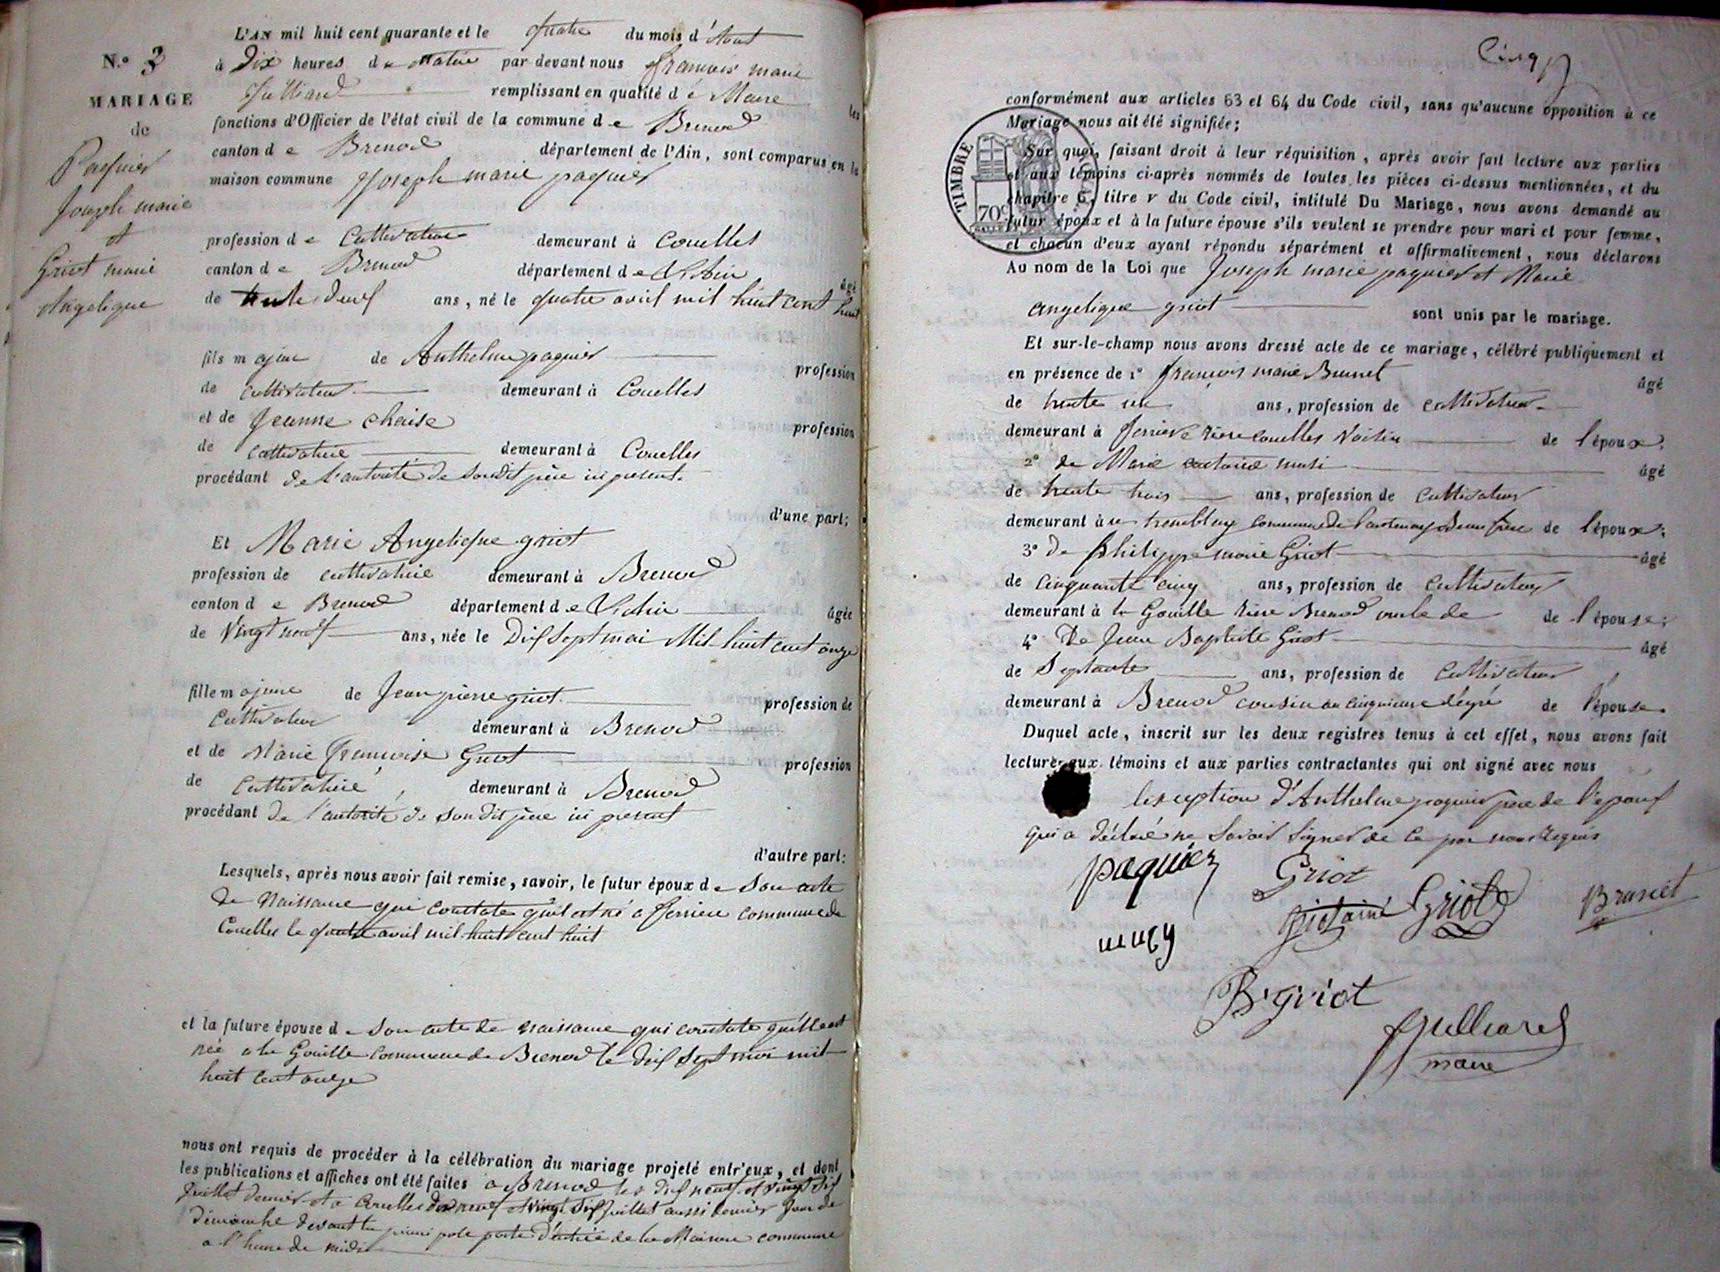 N.º 3
MARIAGE
de
Paquier
Joseph marie
et
Griot marie
Angelique
L'AN mil huit cent quarante et le quatre du mois d'Aout
à Dix heures du matin par-devant nous françois marie
Julliard remplissant en qualité de Maire les
fonctions d'Officier de l'état civil de la commune de Brenod
canton de Brenod département de l'Ain, sont comparus en la
maison commune Joseph marie paquier
profession de Cultivateur demeurant à Corcelles
canton de Brenod département de l'Ain âgé
de trente deux ans, né le quatre avril mil huit cent huit
fils majeur de Anthelme paquier profession
de cultivateur demeurant à Corcelles
et de Jeanne chaise profession
de cultivatrice demeurant à Corcelles
procédant de l'autorité de son dit père ici present.
d'une part;
Et Marie Angelique griot
profession de cultivatrice demeurant à Brenod
canton de Brenod département de l'Ain âgée
de vingt neuf ans, née le Dix sept mai Mil huit cent onze
fille majeure de Jean pierre griot profession de
cultivateur demeurant à Brenod
et de Marie françoise Griot profession
de cultivatrice demeurant à Brenod
procédant de l'autorité de son dit père ici present
d'autre part:
Lesquels, après nous avoir fait remise, savoir, le futur époux de son acte
de Naissance qui constate qu'il est né a ferriere commune de
Corcelles le quatre avril mil huit cent huit
et la future épouse de son acte de naissance qui constate qu'elle est
née a la Gouille commune de Brenod le dix sept mai mil
huit cent onze
nous ont requis de procéder à la célébration du mariage projeté entr'eux, et dont
les publications et affiches ont été faites a Brenod les dix neuf et vingt six
Juillet dernier et a Corcelles dix neuf et vingt six Juillet aussi dernier Jour de
dimanche devant la principale porte d'entrée de la Maison commune
a l'heure de midi
Cinq
conformément aux articles 63 et 64 du Code civil, sans qu'aucune opposition à ce
Mariage nous ait été signifiée;
TIMBRE
70c
Sur quoi, faisant droit à leur réquisition, après avoir fait lecture aux parties
et aux témoins ci-après nommés de toutes les pièces ci-dessus mentionnées, et du
chapitre 6, titre v du Code civil, intitulé Du Mariage, nous avons demandé au
futur époux et à la future épouse s'ils veulent se prendre pour mari et pour femme,
et chacun d'eux ayant répondu séparément et affirmativement, nous déclarons
Au nom de la Loi que Joseph marie paquier et Marie
angelique griot sont unis par le mariage.
Et sur-le-champ nous avons dressé acte de ce mariage, célébré publiquement et
en présence de 1º françois marie Brunet âgé
de trente un ans, profession de cultivateur
demeurant à ferriere riere Corcelles Voisin de l'époux;
2º de Marie âgé
de trente trois ans, profession de cultivateur
demeurant à commune de Beau frere de l'époux;
3º De philippe marie Griot âgé
de cinquante cinq ans, profession de cultivateur
demeurant à la Gouille riere Brenod oncle de de l'épouse;
4º De Jean Baptiste Griot âgé
de Septante ans, profession de cultivateur
demeurant à Brenod cousin au cinquieme dégré de l'épouse.
Duquel acte, inscrit sur les deux registres tenus à cet effet, nous avons fait
lecture aux témoins et aux parties contractantes qui ont signé avec nous
l'exception d'Anthelme paquier père de l'epoux
qui a déclaré ne savoir signer de ce par nous requis
paquier Griot
Griot Brunet
B. griot
Julliard
maire